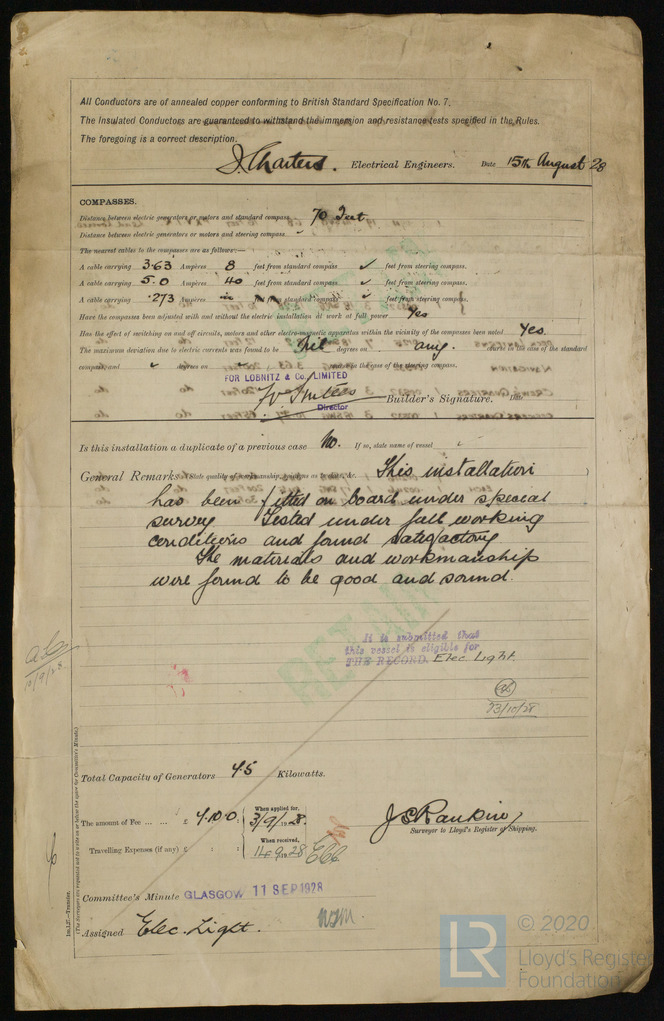 All Conductors are of annealed copper conforming to British Standard Specification No. 7.
The Insulated Conductors are guaranteed to withstand the immersion and resistance tests specified in the Rules.
The foregoing is a correct description.
J. Charters. Electrical Engineers. Date 15th August 28
COMPASSES.
Distance between electric generators or motors and standard compass 70 Feet
Distance between electric generators or motors and steering compass
The nearest cables to the compasses are as follows:—
A cable carrying 3.63 Ampères 8 feet from standard compass ✓ feet from steering compass.
A cable carrying 5.0 Ampères 40 feet from standard compass ✓ feet from steering compass.
A cable carrying .273 Ampères in feet from standard compass ✓ feet from steering compass.
Have the compasses been adjusted with and without the electric installation at work at full power Yes
Has the effect of switching on and off circuits, motors and other electro-magnetic apparatus within the vicinity of the compasses been noted Yes
The maximum deviation due to electric currents was found to be Nil degrees on any course in the case of the standard
compass, and degrees on course in the case of the steering compass.
FOR LOBNITZ & Co. LIMITED
Director
Builder's Signature. Date
Is this installation a duplicate of a previous case No. If so, state name of vessel
General Remarks This installation
has been fitted on board under special
survey. Tested under full working
conditions and found satisfactory
The materials and workmanship
were found to be good and sound.
RETAIN
It is submitted that
this vessel is eligible for
THE RECORD. Elec. Light.
23/10/28
Total Capacity of Generators 4.5 Kilowatts.
The amount of Fee ... ... £ 4.10.0 When applied for, 3/9/1928.
Travelling Expenses (if any) £ : : When received, 14.9.1928
J S Rankin
Surveyor to Lloyd's Register of Shipping.
Committee's Minute GLASGOW 11 SEP 1928
Assigned Elec. Light.
(The Surveyors are requested not to write on or below the space for Committee's Minute.)
© 2020
LR
Lloyd's Register
Foundation